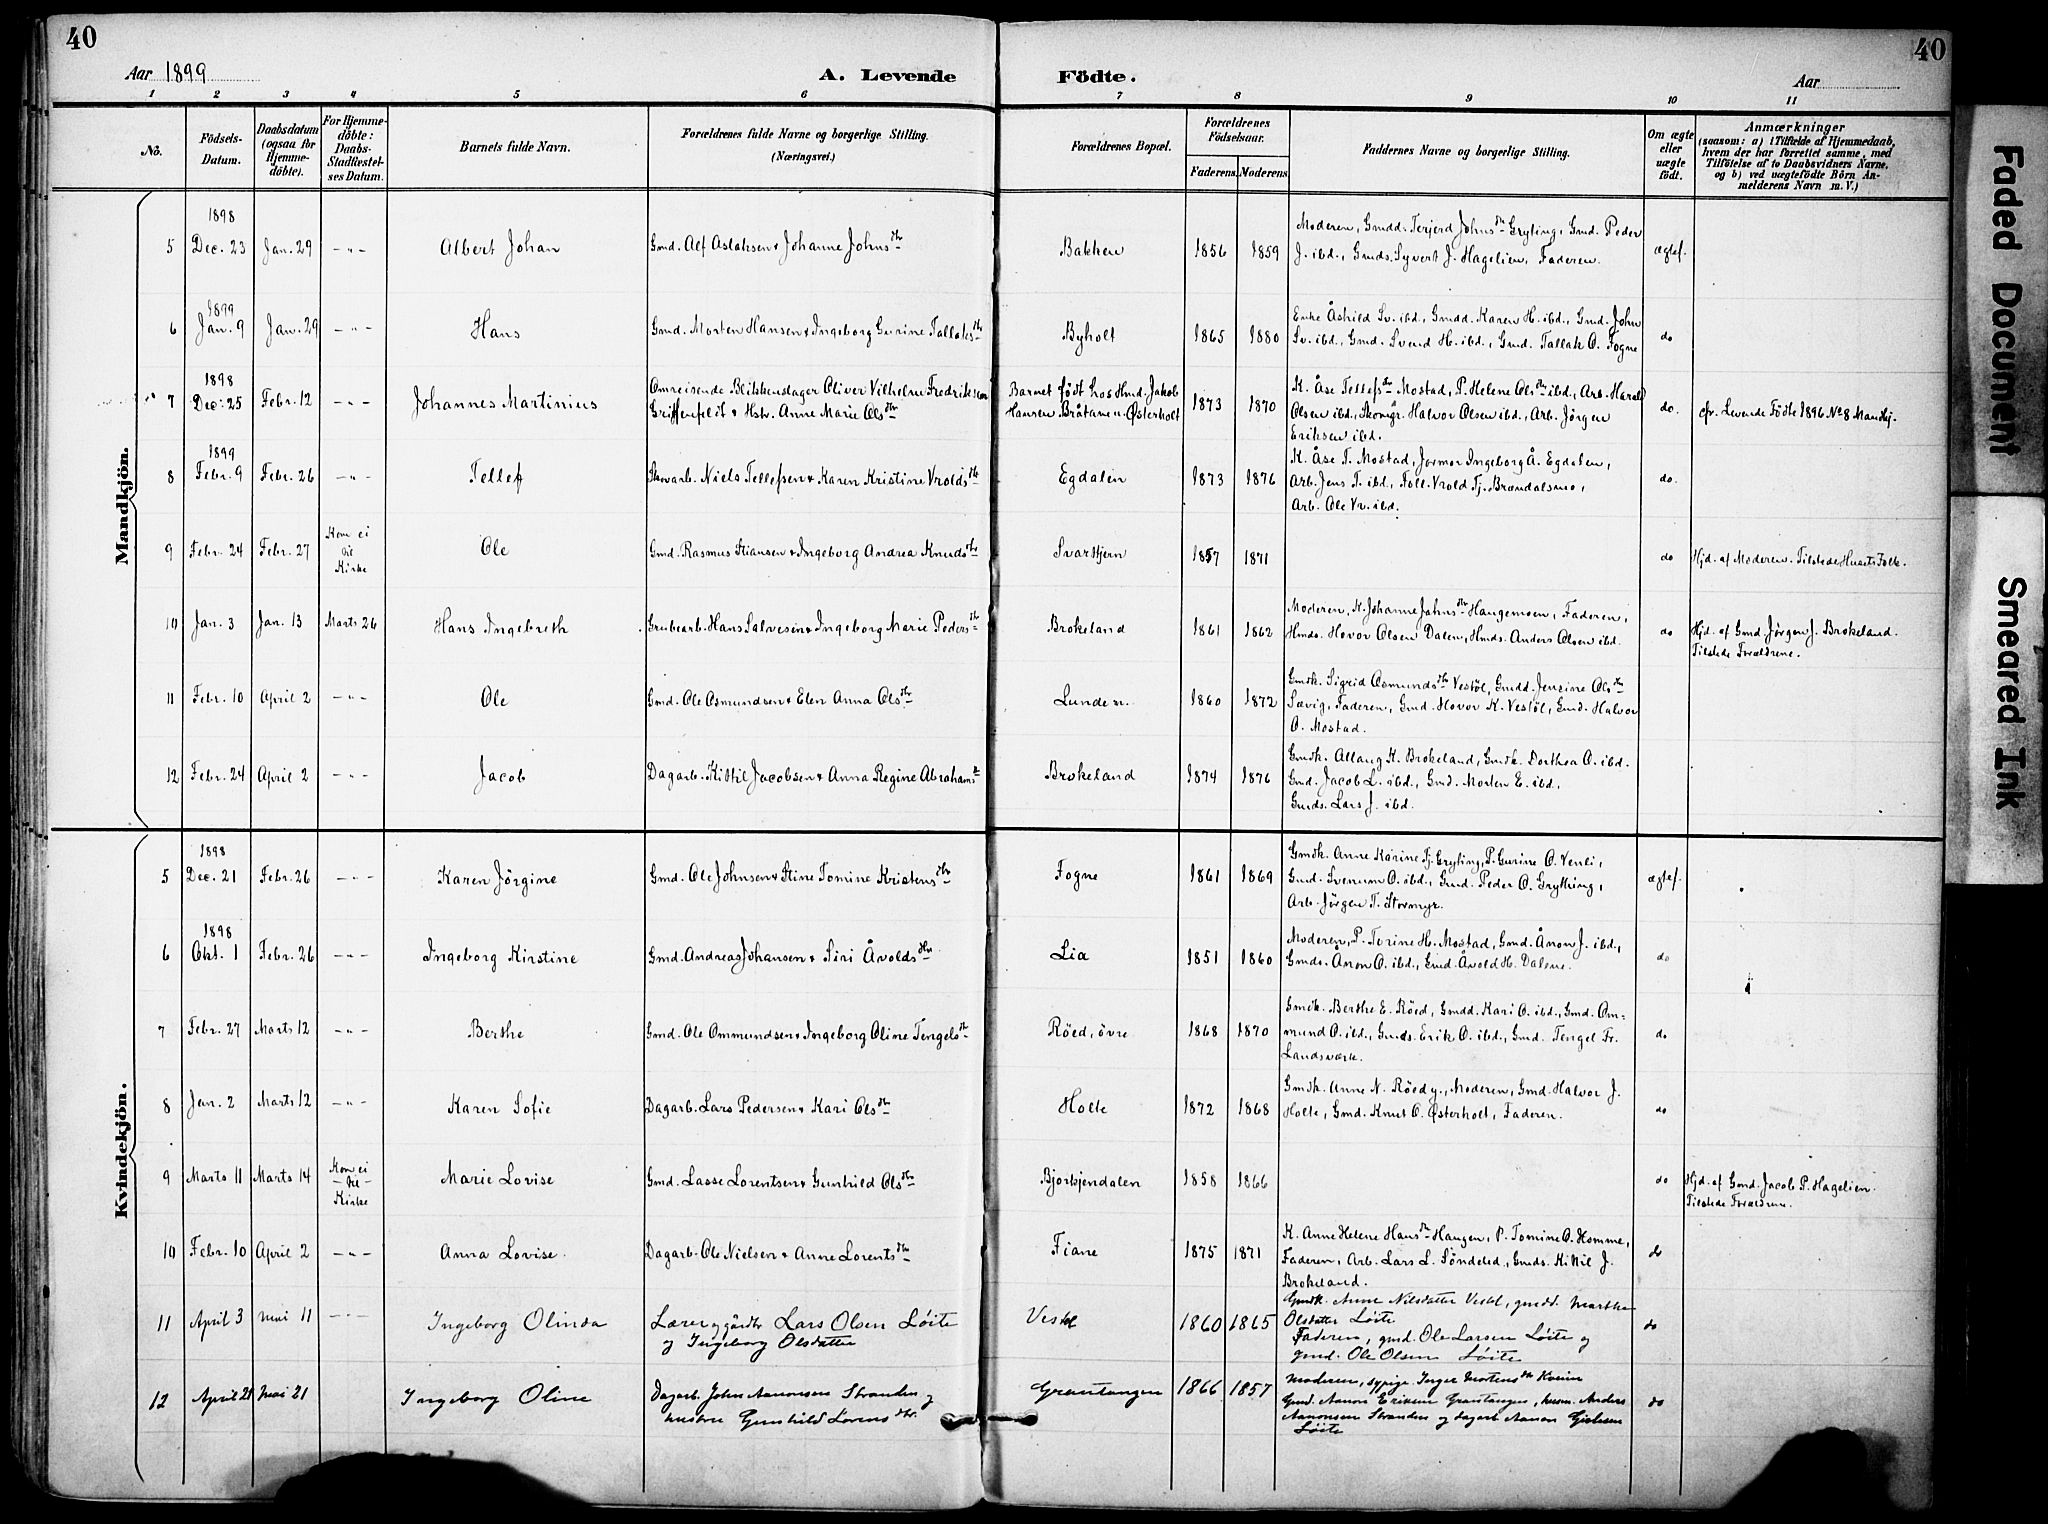 40
40
Aar 1899
A. Levende Födte.
Aar
1 2 3 4 5 6 7 8 9 10 11
No.
Födsels-Datum.
Daabsdatum (ogsaa for Hjemmedöbte).
For Hjemmedöbte: Daabs-Stadfæstelses Datum.
Barnets fulde Navn.
Forældrenes fulde Navne og borgerlige Stilling.
(Næringsvei.)
Forældrenes Bopæl.
Forældrenes Födselsaar.
Faderens.
Moderens.
Faddernes Navne og borgerlige Stilling.
Om ægte eller uægte födt.
Anmærkninger
(saasom: a) i Tilfælde af Hjemmedaab, hvem der har forrettet samme, med Tilföielse af to Daabsvidners Navne, og b) ved uægtefödte Börn Anmelderens Navn m. V.)
Mandkjön.
5 1898 Dec. 23 Jan. 29 - " - Albert Johan Gmd. Alf Aslaksen & Johanne Johnsdtr Bakken 1856 1859 Moderen, Gmdd. Terjerd Johnsdtr Gryting, Gmd. Peder
J. ibd., Gmds. Syvert J. Hagelien, Faderen. ægtef.
6 1899 Jan. 9 Jan. 29 - " - Hans Gmd. Morten Hansen & Ingeborg Gurine Tallaksdtr Byholt 1865 1880 Enke Åshild Sv. ibd., Gmdd. Karen H. ibd., Gmd. John
Sv. ibd., Gmd. Svend H. ibd., Gmd. Tallak O. Fogne do
7 1898 Dec. 25 Febr. 12 - " - Johannes Martinius Omreisende Blikkenslager Oliver Vilhelm Fredriksen
Griffenfeldt & Hstr. Anne Marie Olsdtr Barnet født hos Hmd. Jakob
Hansen Bråtane u. Østerholt 1873 1870 K. Åse Tellefsdtr Mostad, P. Helene Olsdtr ibd., Arb. Harald
Olsen ibd., Skomgr. Halvor Olsen ibd., Arb. Jörgen
Eriksen ibd. do. cfr. Levende Födte 1896 No 8 Mandkj.
8 1899 Febr. 9 Febr. 26 - " - Tellef Skovarb. Niels Tellefsen & Karen Kristine Vroldsdtr Egdalen 1873 1876 K. Åse T. Mostad, Jormor Ingeborg Å. Egdalen,
Arb. Jens T. ibd., Foll. Vrold Tj. Brændalsmo,
Arb. Ole Vr. ibd. do.
9 Febr. 24 Febr. 27 Kom ei til Kirke Ole Gmd. Rasmus Stiansen & Ingeborg Andrea Knudsdtr Svartkjern 1857 1871 do Hjd. af Moderen. Tilstede Husets Folk.
10 Jan. 3 Jan. 13 Marts 26 Hans Ingebreth Grubearb. Hans Salvesen & Ingeborg Marie Pedersdtr Brokeland 1861 1862 Moderen, K. Johanne Johnsdtr Haugemoen, Faderen,
Hmds. Hovor Olsen Dalen, Hmds. Anders Olsen ibd. do Hjd. af Gmd. Jörgen J. Brokeland.
Tilstede Forældrene.
11 Febr. 10 April 2 - " - Ole Gmd. Ole Osmundsen & Elen Anna Olsdtr Lunde n. 1860 1872 Gmdk. Sigrid Osmundsdtr Vestöl, Gmdd. Jensine Olsdtr
Sævig, Faderen, Gmd. Hovor K. Vestöl, Gmd. Halvor
O. Mostad.
12 Febr. 24 April 2 - " - Jacob Dagarb. Kittil Jacobsen & Anna Regine Abrahamsdtr Brokeland 1874 1876 Gmdk. Allaug K. Brokeland, Gmdk. Dorthea O. ibd.
Gmd. Jacob L. ibd., Gmd. Morten E. ibd.,
Gmds. Lars J. ibd.
Kvindekjön.
5 1898 Dec. 21 Febr. 26 - " - Karen Jörgine Gmd. Ole Johnsen & Stine Tomine Kristensdtr Fogne 1861 1869 Gmdk. Anne Karine Tj. Gryting, P. Gurine O. Venli,
Gmd. Svenum O. ibd., Gmd. Peder O. Grytting,
Arb. Jörgen T. Stormyr. ægtef.
6 1898 Okt. 1 Febr. 26 - " - Ingeborg Kirstine Gmd. Andreas Johansen & Siri Åvoldsdtr Lia 1851 1860 Moderen, P. Torine H. Mostad, Gmd. Ånon J. ibd.,
Gmds. Ånon O. ibd., Gmd. Åvold H. Dalene. do
7 Febr. 27 Marts 12 - " - Berthe Gmd. Ole Ommundsen & Ingeborg Oline Tengelsdtr Röed, övre 1868 1870 Gmdk. Berthe E. Röed, Gmdd. Kari O. ibd., Gmd. Om-
mund O. ibd., Gmds. Erik O. ibd., Gmd. Tengel Fr.
Landsværk. do
8 Jan. 2 Marts 12 - " - Karen Sofie Dagarb. Lars Pedersen & Kari Olsdtr Holte 1872 1868 Gmdk. Anne N. Röed y., Moderen, Gmd. Halvor J.
Holte, Gmd. Knut O. Østerholt, Faderen. do
9 Marts 11 Marts 14 Kom ei til Kirke Marie Lovise Gmd. Lasse Lorentsen & Gunhild Olsdtr Bjorkjendalen 1858 1866 do Hjd. af Gmd. Jacob P. Hagelien.
Tilstede Forældrene.
10 Febr. 10 April 2 - " - Anna Lovise Dagarb. Ole Nielsen & Anne Lorentsdtr Fiane 1875 1871 K. Anne Helene Hansdtr Haugen, P. Tomine O. Homme,
Faderen, Arb. Lars L. Söndeled, Gmds. Kittil J.
Brokeland. do
11 April 3 Mai 11 - " - Ingeborg Olinda Lærer og gårdbr Lars Olsen Löite
og Ingeborg Olsdatter Vestøl 1860 1865 Gmdk. Anne Nilsdatter Vestøl, gmdd. Marthe
Olsdatter Löite
Faderen, gmd. Ole Larsen Löite og
gmd. Ole Olsen Löite do
12 April 21 Mai 21 Ingeborg Oline Dagarb. John Aanonsen Stranden og
hustru Gunhild Lorensdtr. Grautangen 1866 1857 Moderen, sypige Inger Mortensdtr
Gmd. Aanon Eriksen Grautangen, Anders
Aanonsen Stranden og dagarb Aanon Gjelsen
Löite do
Faded Document
Smeared Ink